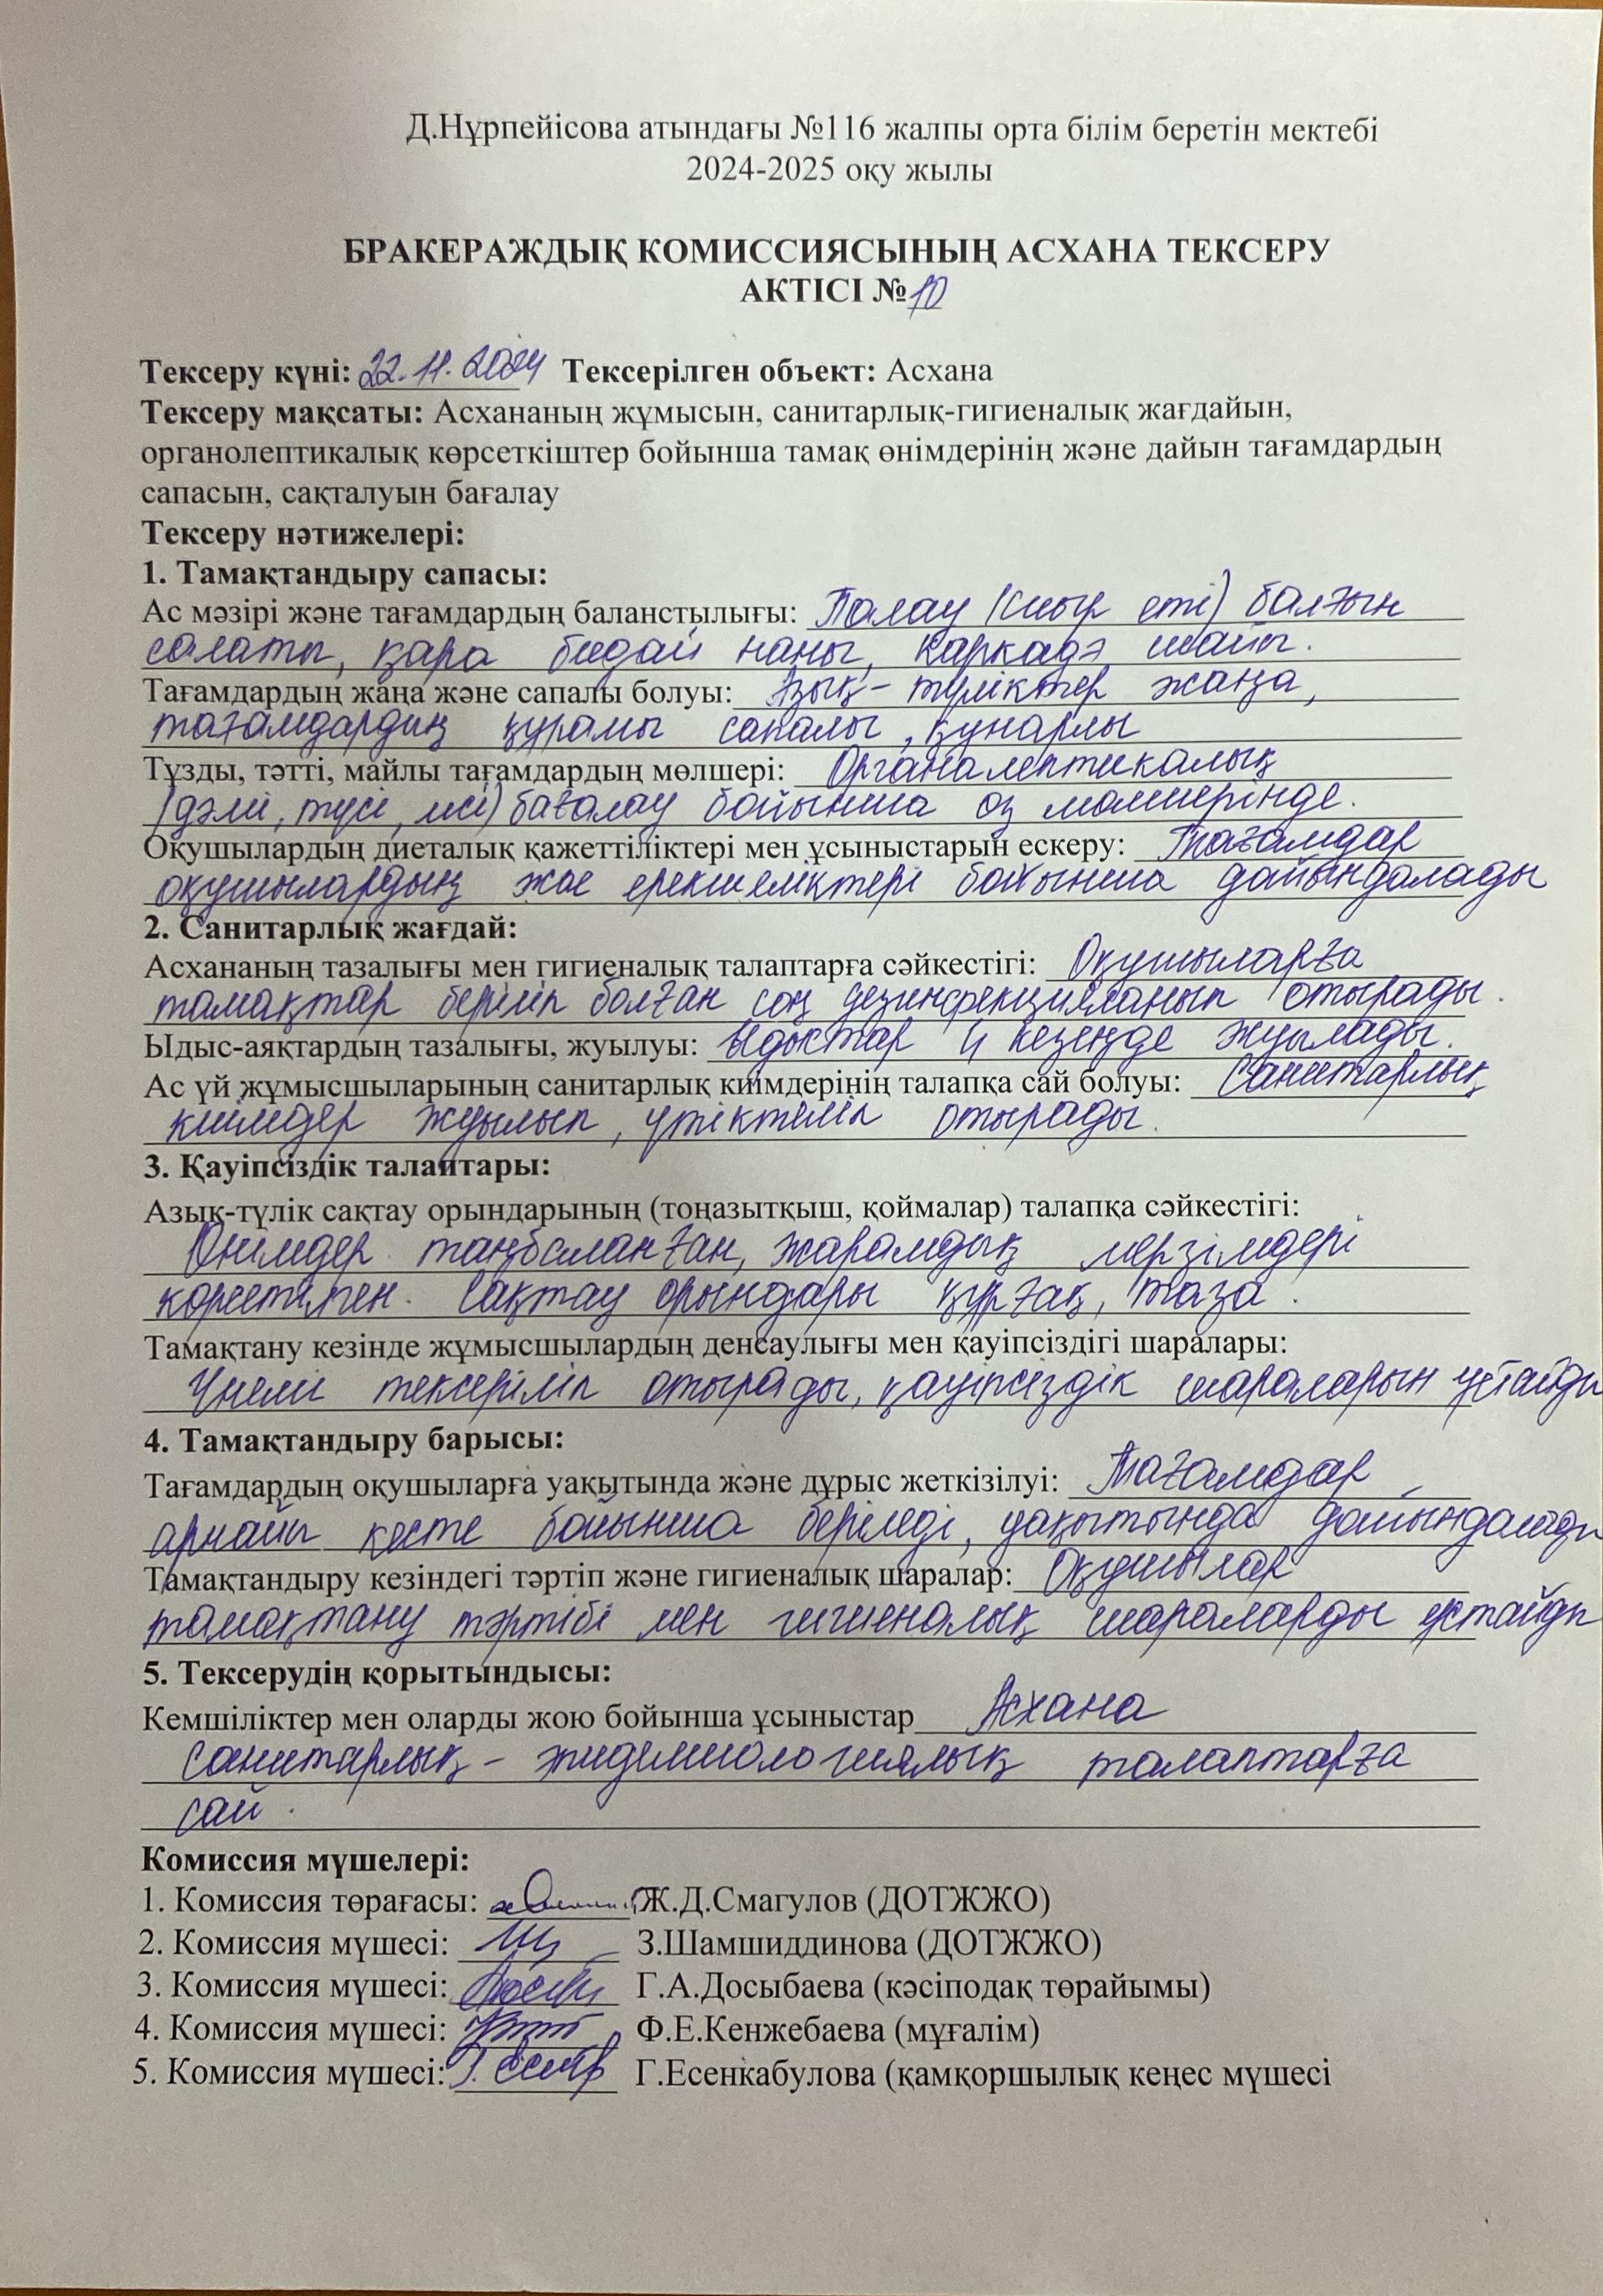 Д.Нұрпейісова атындағы №116 жалпы орта білім беретін мектебі
2024-2025 оқу жылы
БРАКЕРАЖДЫҚ КОМИССИЯСЫНЫҢ АСХАНА ТЕКСЕРУ
АКТІСІ №10
Тексеру күні: 22.11.2024 Тексерілген объект: Асхана
Тексеру мақсаты: Асхананың жұмысын, санитарлық-гигиеналық жағдайын,
органолептикалық көрсеткіштер бойынша тамақ өнімдерінің және дайын тағамдардың
сапасын, сақталуын бағалау
Тексеру нәтижелері:
1. Тамақтандыру сапасы:
Ас мәзірі және тағамдардың баланстылығы: Палау (сиыр еті) балғын
салаты, қара бидай наны, Каркадэ шайы.
Тағамдардың жаңа және сапалы болуы: Азық-түліктер жаңа,
тағамдардың құрамы сапалы, құнарлы
Тұзды, тәтті, майлы тағамдардың мөлшері: Органалептикалық
(дәмі, түсі, иісі) бағалау бойынша өз мөлшерінде.
Оқушылардың диеталық қажеттіліктері мен ұсыныстарын ескеру: Тағамдар
оқушылардың жас ерекшеліктері бойынша дайындалады
2. Санитарлық жағдай:
Асхананың тазалығы мен гигиеналық талаптарға сәйкестігі: Оқушыларға
тамақтар беріліп болған соң дезинфекцияланып отырады.
Ыдыс-аяқтардың тазалығы, жуылуы: Ыдыстар 4 кезеңде жуылады.
Ас үй жұмысшыларының санитарлық киімдерінің талапқа сай болуы: Санитарлық
киімдер жуылып, үтіктеліп отырады.
3. Қауіпсіздік талаптары:
Азық-түлік сақтау орындарының (тоңазытқыш, қоймалар) талапқа сәйкестігі:
Өнімдер таңбаланған, жарамдық мерзімдері
көрсетілген. Сақтау орындары құрғақ, таза.
Тамақтану кезінде жұмысшылардың денсаулығы мен қауіпсіздігі шаралары:
Үнемі тексеріліп отырады, қауіпсіздік шараларын ұстайды
4. Тамақтандыру барысы:
Тағамдардың оқушыларға уақытында және дұрыс жеткізілуі: Тағамдар
арнайы кесте бойынша беріледі, уақытында дайындалады
Тамақтандыру кезіндегі тәртіп және гигиеналық шаралар: Оқушылар
тамақтану тәртібі мен гигиеналық шараларды ұстайды
5. Тексерудің қорытындысы:
Кемшіліктер мен оларды жою бойынша ұсыныстар Асхана
санитарлық - эпидемиологиялық талаптарға
сай.
Комиссия мүшелері:
1. Комиссия төрағасы: Ж.Д.Смагулов (ДОТЖЖО)
2. Комиссия мүшесі: З.Шамшиддинова (ДОТЖЖО)
3. Комиссия мүшесі: Г.А.Досыбаева (кәсіподақ төрайымы)
4. Комиссия мүшесі: Ф.Е.Кенжебаева (мұғалім)
5. Комиссия мүшесі: Г.Есенкабулова (қамқоршылық кеңес мүшесі